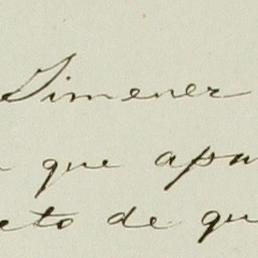 Jimenez
que apu
eto de qu